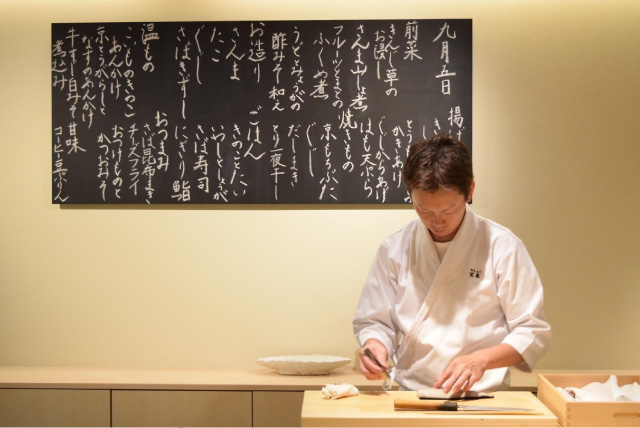 九月五日
前菜
お浸し
さんま山しょ煮
ふくめ煮
うどとみょうがの
酢みそ和え
お造り
さんま
ぐじ
たこ
さばきずし
温もの
こいものきのこ
あんかけ
京とうがらしと
なすのあんかけ
牛すじ白みそ
煮込み
揚げ
かきあげ
ぐじからあげ
はも天ぷら
焼きもの
京もちぶた
ぐじ
だしまき
とり一夜干し
ごはん
きのことたい
いわしとしょうが
さば寿司
にぎり鮨
おつまみ
さば昆布まき
チーズフライ
おつけものと
かつおみそ
甘味
コーヒー豆かん